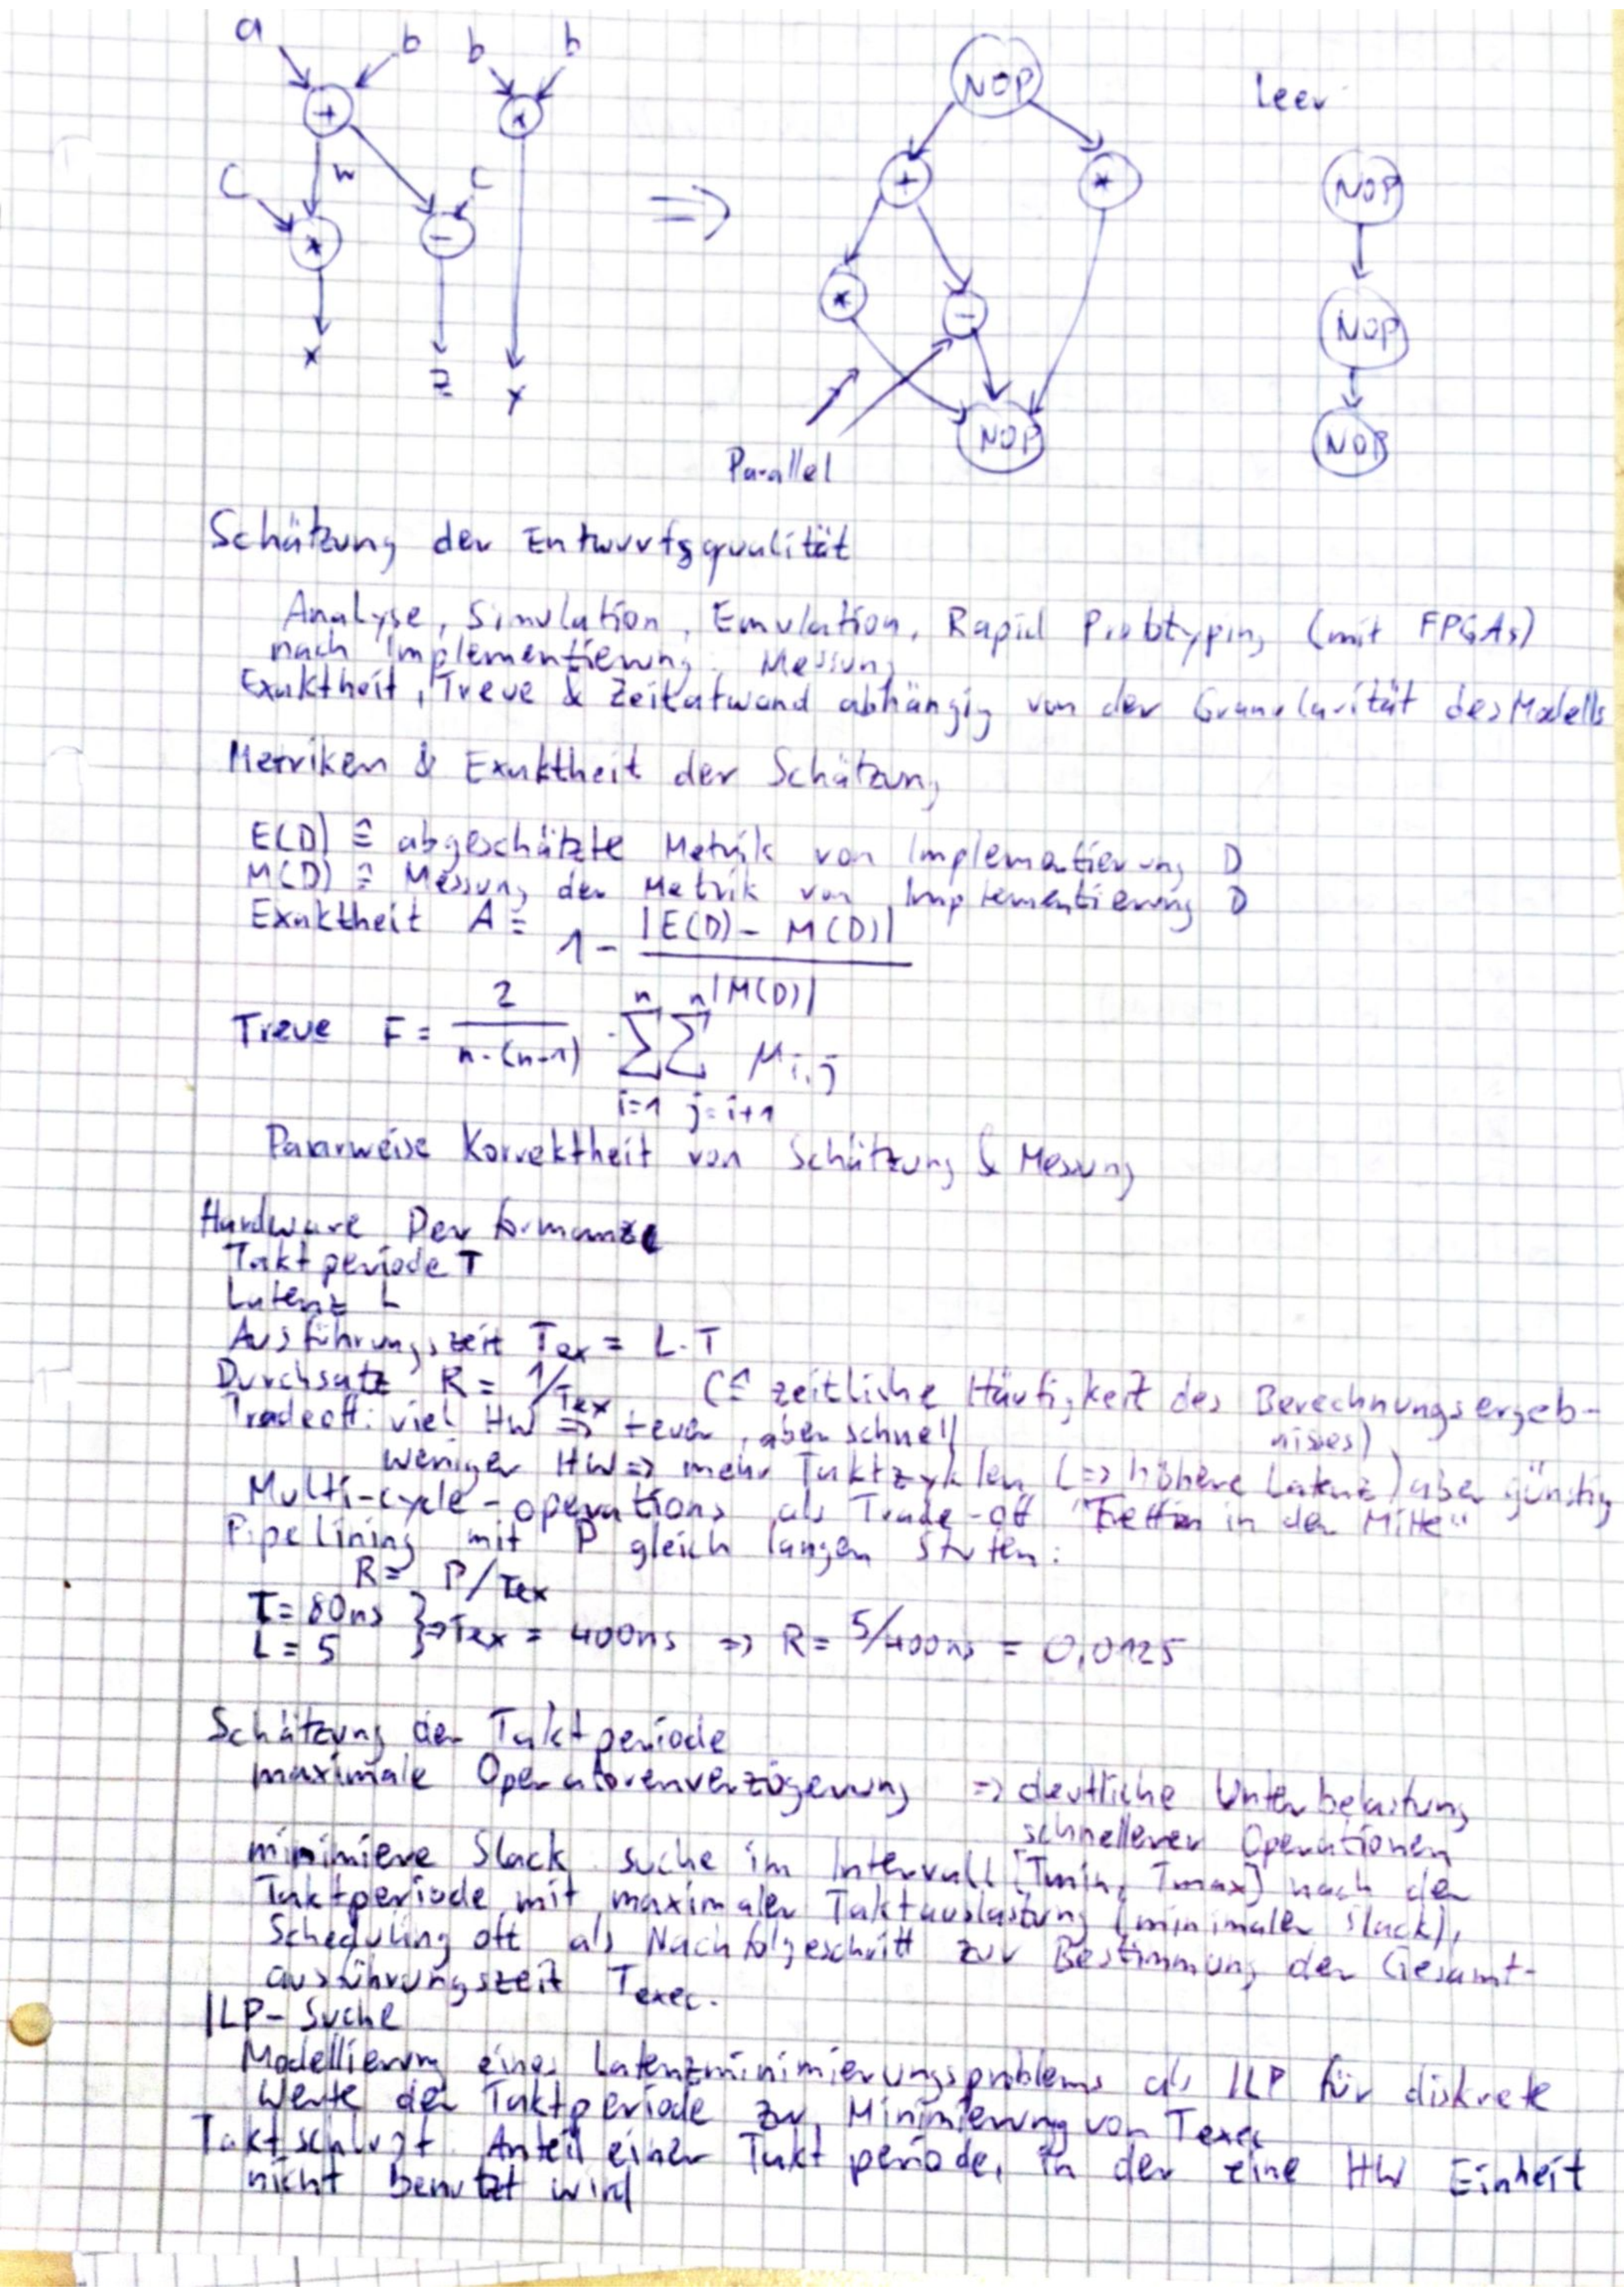 a b b b
+ *
C w C
* -
x z y
⇒
NOP
+ *
* -
NOP
Parallel
leer
NOP
NOP
NOP
Schätzung der Entwurfsqualität
Analyse, Simulation, Emulation, Rapid Prototyping (mit FPGAs)
nach Implementierung: Messung
Exaktheit, Treue & Zeitatwand abhängig von der Granularität des Modells
Metriken & Exaktheit der Schätzung
E(D) ≙ abgeschätzte Metrik von Implementierung D
M(D) ≙ Messung der Metrik von Implementierung D
Exaktheit A = 1 - |E(D) - M(D)| / |M(D)|
Treue F = 2 / n·(n-1) · ∑ⁿᵢ₌₁ ∑ⁿⱼ₌ᵢ₊₁ μi,j
Paarweise Korrektheit von Schätzung & Messung
Hardware Performanze
Taktperiode T
Latenz L
Ausführungszeit Tex = L·T
Durchsatz R = 1/Tex (≙ zeitliche Häufigkeit des Berechnungsergeb-
nisses)
Tradeoff: viel HW ⇒ teuer, aber schnell
weniger HW ⇒ mehr Taktzyklen (⇒ höhere Latenz) aber günstig
Multi-cycle-operations als Trade-off "Treffen in der Mitte"
Pipelining mit P gleich langen Stufen:
R = P/Tex
T = 80ns
L = 5 } ⇒ Tex = 400ns ⇒ R = 5/400ns = 0,0125
Schätzung der Taktperiode
maximale Operatorenverzögerung ⇒ deutliche Unterbelastung
schnellerer Operationen
minimiere Slack suche im Intervall [Tmin, Tmax] nach der
Taktperiode mit maximaler Taktauslastung (minimaler Slack),
Scheduling oft als Nachfolgeschritt zur Bestimmung der Gesamt-
ausführungszeit Texec.
ILP-Suche
Modellierung eines Latenzminimierungsproblems als ILP für diskrete
Werte der Taktperiode zur Minimierung von Texec
Taktschlupf Anteil einer Taktperiode, in der eine HW Einheit
nicht benutzt wird